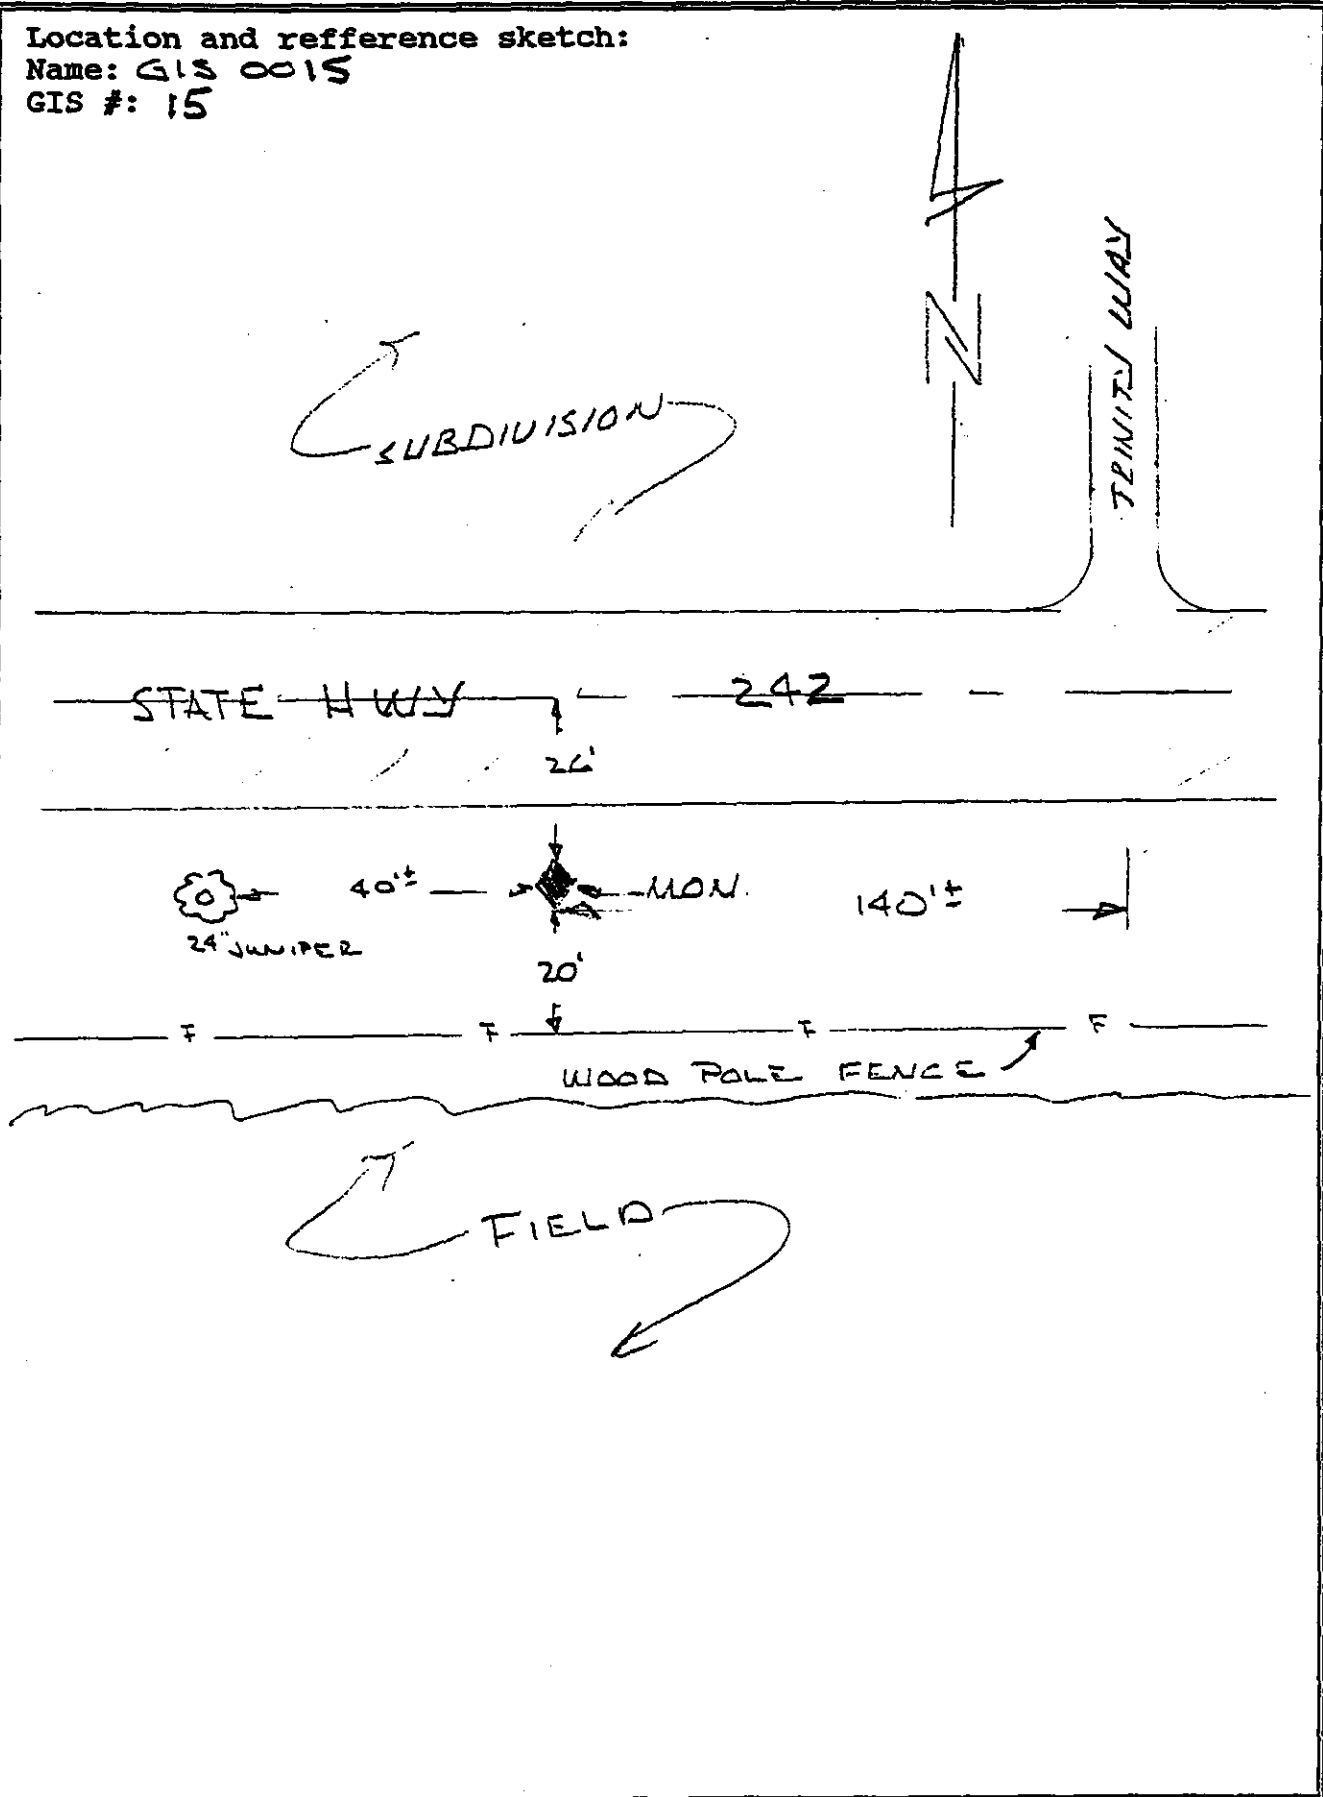 Location and refference sketch:
Name: GIS 0015
GIS #: 15
N
TRINITY WAY
SUBDIVISION
STATE HWY 242
40'± MON. 140'±
24" JUNIPER
20'
F F F F
WOOD POLE FENCE
FIELD